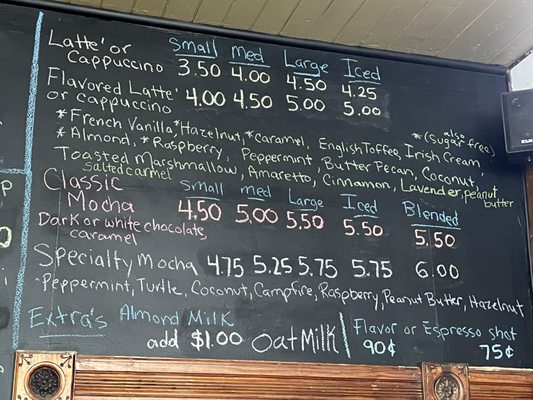 Small Med Large Iced
Latte' or Cappuccino 3.50 4.00 4.50 4.25
Flavored Latte' or cappuccino 4.00 4.50 5.00 5.00
*French Vanilla, *Hazelnut, *Caramel, English Toffee, Irish Cream, *(also Sugar free)
*Almond, *Raspberry, Peppermint, Butter Pecan, Coconut,
Toasted Marshmallow, Amaretto, Cinnamon, Lavender, peanut butter
Salted caramel
Small med Large Iced Blended
Classic Mocha 4.50 5.00 5.50 5.50 5.50
Dark or white chocolate, caramel
Specialty Mocha 4.75 5.25 5.75 5.75 6.00
Peppermint, Turtle, Coconut, Campfire, Raspberry, Peanut Butter, Hazelnut
Extra's Almond Milk Oat Milk
add $1.00
Flavor or Espresso shot
90¢ 75¢